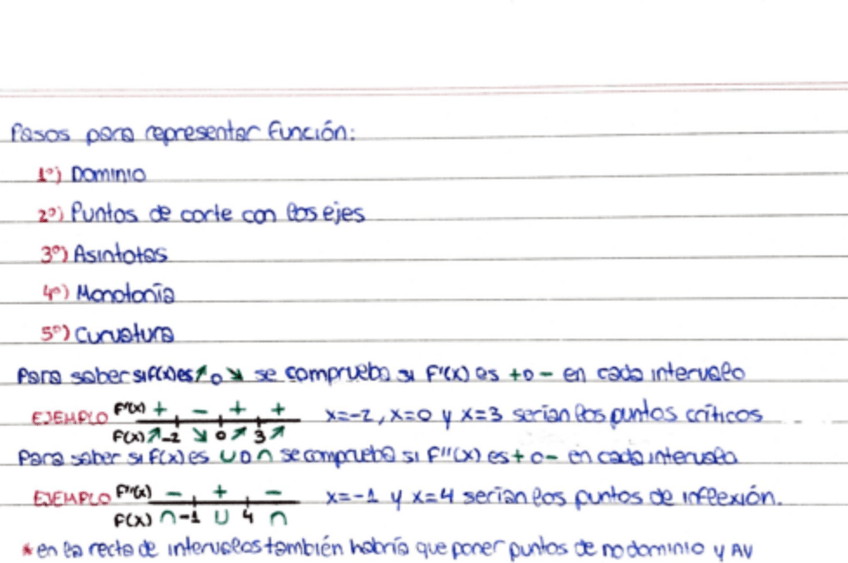 Pasos para representar función:
1º) Dominio
2º) Puntos de corte con los ejes
3º) Asíntotas
4º) Monotonía
5º) Curvatura
Para saber si f(x) es ↗ o ↘ se comprueba si F'(x) es + o - en cada intervalo
EJEMPLO F'(x) + - + + x=-2, x=0 y x=3 serían los puntos críticos
F(x) ↗ -2 ↘ 0 ↗ 3 ↗
Para saber si f(x) es ∪ o ∩ se comprueba si F''(x) es + o - en cada intervalo
EJEMPLO F''(x) - + - x=-1 y x=4 serían los puntos de inflexión.
F(x) ∩ -1 ∪ 4 ∩
* en la recta de intervalos también habría que poner puntos de no dominio y AV